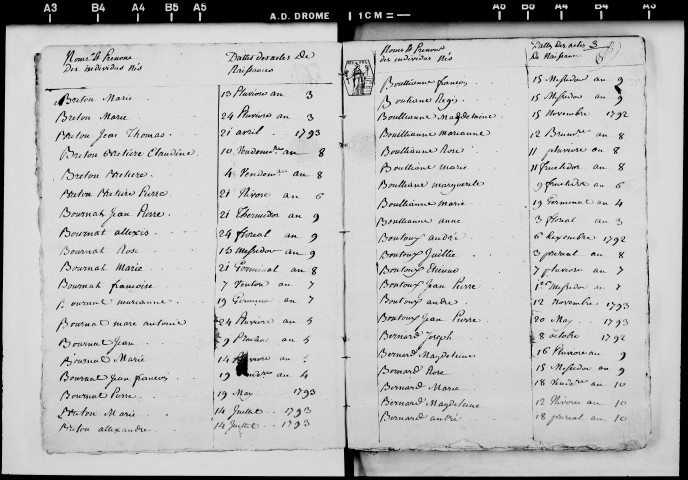 A3 B4 A4 B5 A5
A.D. DROME 1 CM
A5 B5 A4 B4 A3
Noms et Prenoms
Des individus Nés
Dattes des actes De
Naissances
Breton Marie 13 Pluviose an 3
Breton Marie 24 Pluviose an 3
Breton Jean Thomas 21 avril 1793
Breton Bretiere Claudine 10 Vendem.re an 8
Breton Bretiere 4 Vendem.re an 8
Breton Bretiere Pierre 21 Nivose an 6
Bournat Jean Pierre 21 Thermidor an 9
Bournat allexis 24 floreal an 9
Bournat Rose 13 Messidor an 9
Bournat Marie 21 Germinal an 8
Bournat françoise 7 Ventose an 7
Bournat marianne 19 Germinal an 7
Bournat marc antoine 24 Pluviose an 5
Bournat Jean 9 an 5
Bournat Marie 14 an
Bournat Jean francois 19 an 4
Bournat Pierre 19 May 1793
Breton Marie 14 Juillet 1793
Breton allexandre 14 Juillet 1793
Noms et Prenoms
des individus Nés
Dattes des actes 3
De Naissance
Boullianne francois 15 Messidor an 9
Bouliane Regis 15 Messidor an 9
Boullianne Magdeleine 15 Novembre 1792
Bouillianne marianne 12 Brum.re an 8
Boullianne Rose 11 pluviose an 8
Boulliane marie 11 fructidor an 8
Boulliane marguerite 9 fructidor an 6
Boullianne marie 19 Germinal an 4
Boullianne anne 3 floreal an 3
Boutoux andré 6 Dexembre 1792
Boutoux Juillie 3 prereal an 8
Boutoux Etienne 7 pluviose an 7
Boutoux Jean Pierre 1er Messidor an 7
Boutoux andre 12 Novembre 1793
Boutoux Jean Pierre 20 May 1793
Bernard Joseph 8 octobre 1792
Bernard Magdeleine 16 Pluviose an 9
Bernard Rose 15 Messidor an 9
Bernard Marie 18 Vendem.re an 10
Bernard Magdeleine 12 Nivose an 10
Bernard andré 18 prereal an 10